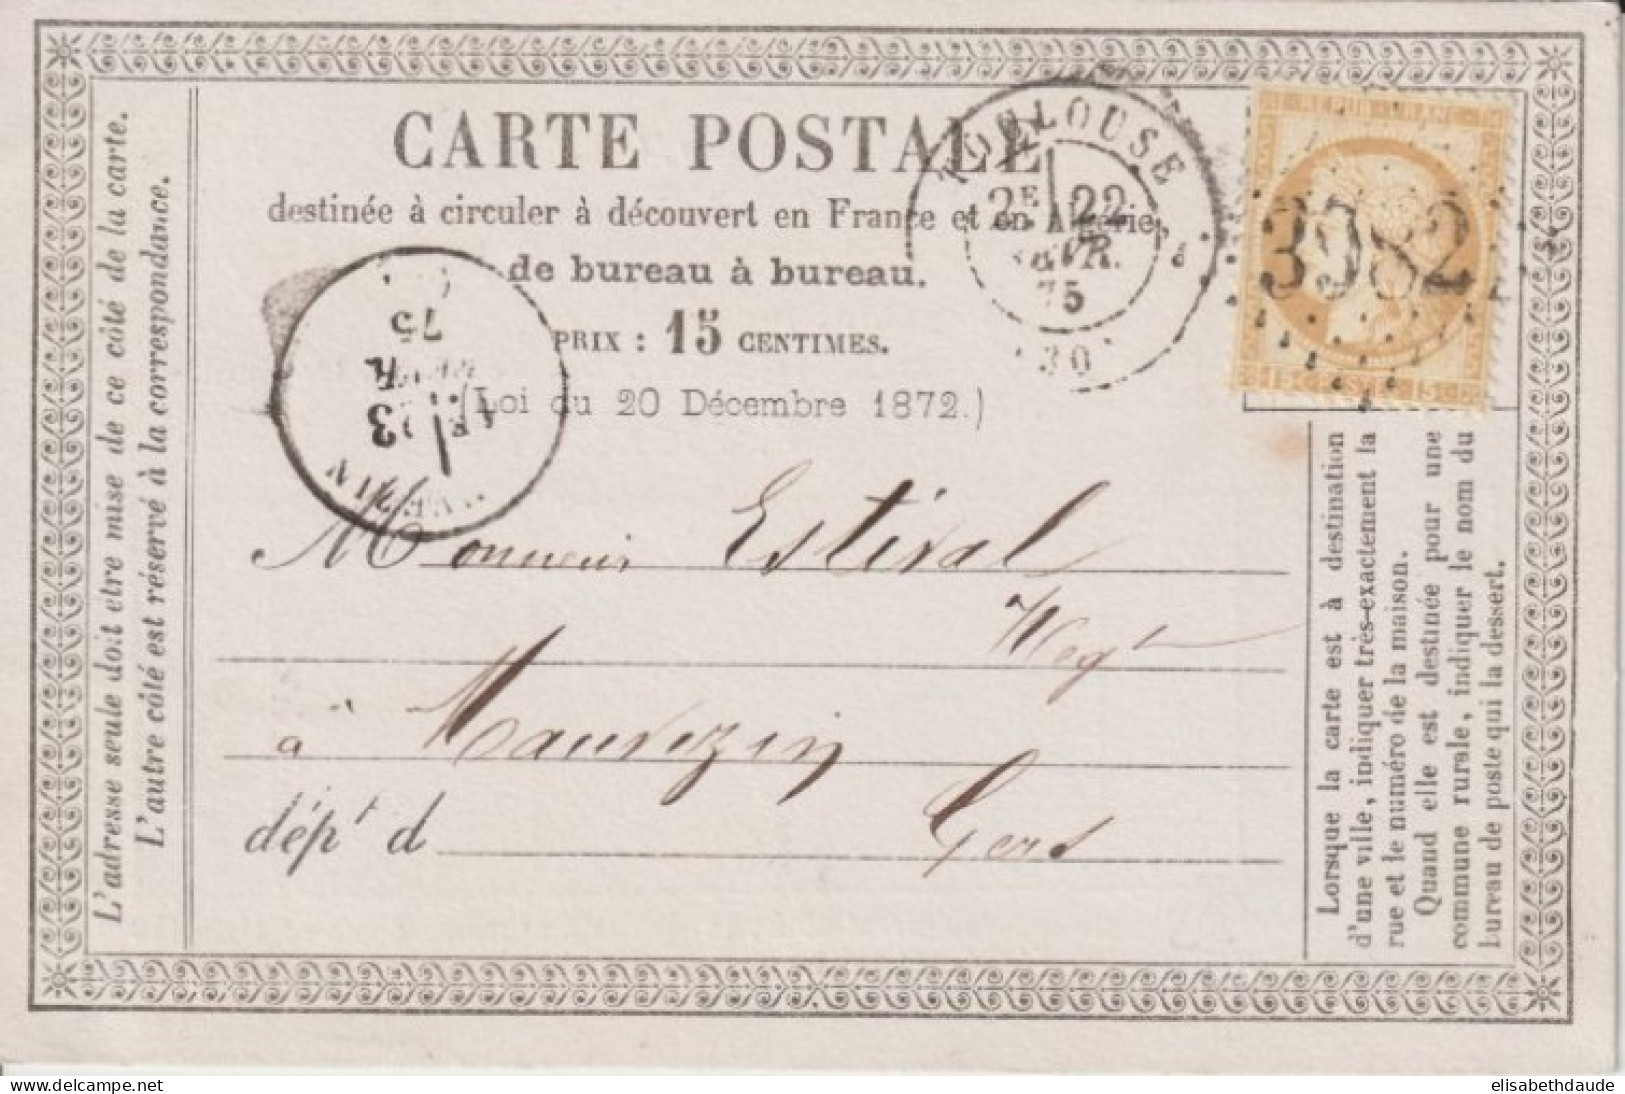 CARTE POSTALE
destinée à circuler à découvert en France et en Algérie,
de bureau à bureau.
PRIX : 15 CENTIMES.
(Loi du 20 Décembre 1872.)
TOULOUSE
2E 22
75
(30)
3982
15 C POSTES 15 C
75
23
Monsieur Estival
Negt
à Mauvezin
dépt d Gers
L'adresse seule doit etre mise de ce côté de la carte.
L'autre côté est réservé à la correspondance.
Lorsque la carte est à destination
d'une ville, indiquer très-exactement la
rue et le numéro de la maison.
Quand elle est destinée pour une
commune rurale, indiquer le nom du
bureau de poste qui la dessert.
delcampe.net
elisabethdaude